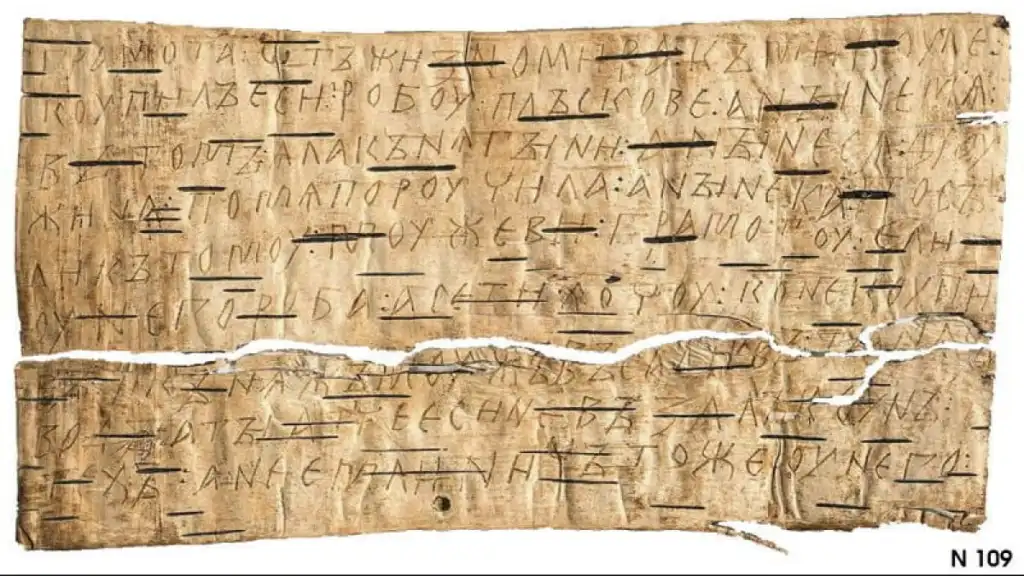 ГРАМОТА : ѾТЪ ЖИЗНОМИРА КЪ МИКОУЛЕ :
КОУПИЛЪ ЕСИ : РОБОУ ПЛЪСКОВЕ : А НЫНЕ МѦ :
ВЪ ТОМЪ : ѦЛА КЪНѦГЫНИ : А НЫНЕ СѦ ДРОУ
ЖИНА : ПО МѦ ПОРОУЧИЛА : А НЫНЕ КА ПОСЪ
ЛИ КЪ ТОМОУ : МОУЖЕВИ : ГРАМОТОУ : ЕЛИ
ОУ НЕГО РОБА : А СЕ ТИ ХОЧОУ : КОНЕ КОУПИ
ВЪ : И КЪНѦЖЪ МОУЖЪ ВЪСАДИВЪ : ТА НА СЪ
ВОДЫ : А ТЫ АТЧЕ ЕСИ НЕ ВЪЗАЛЪ КОУНЪ :
ТЕХЪ : А НЕ ЕМЛИ : НИЧЪТО ЖЕ ОУ НЕГО :
N 109